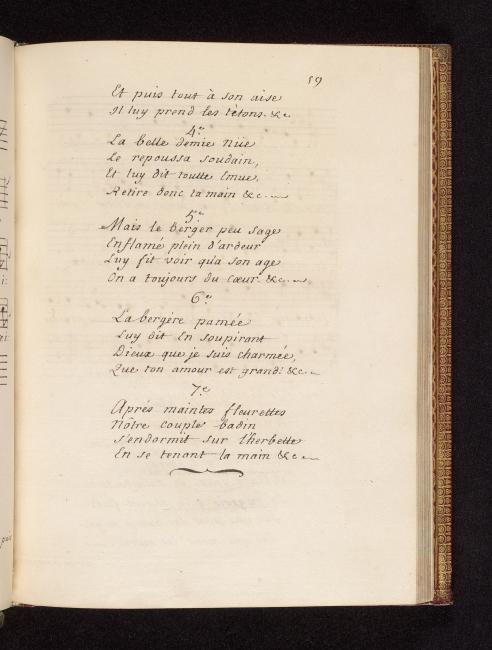 59
Et puis tout à son aise
Il luy prend les tétons &c
4.e
La belle demie nüe
Le repoussa soudain,
Et luy dit toutte Emue
Retire donc ta main &c
5.e
Mais le berger peu sage
Enflamé plein d'ardeur
Luy fit voir qu'a son age
On a toujours du Cœur &c
6.e
La bergère pamée
Luy dit En soupirant
Dieux que je suis charmée,
Que ton amour est grand! &c
7.e
Aprés maintes fleurettes
Nôtre couple badin
s'endormit sur l'herbette
En se tenant la main &c